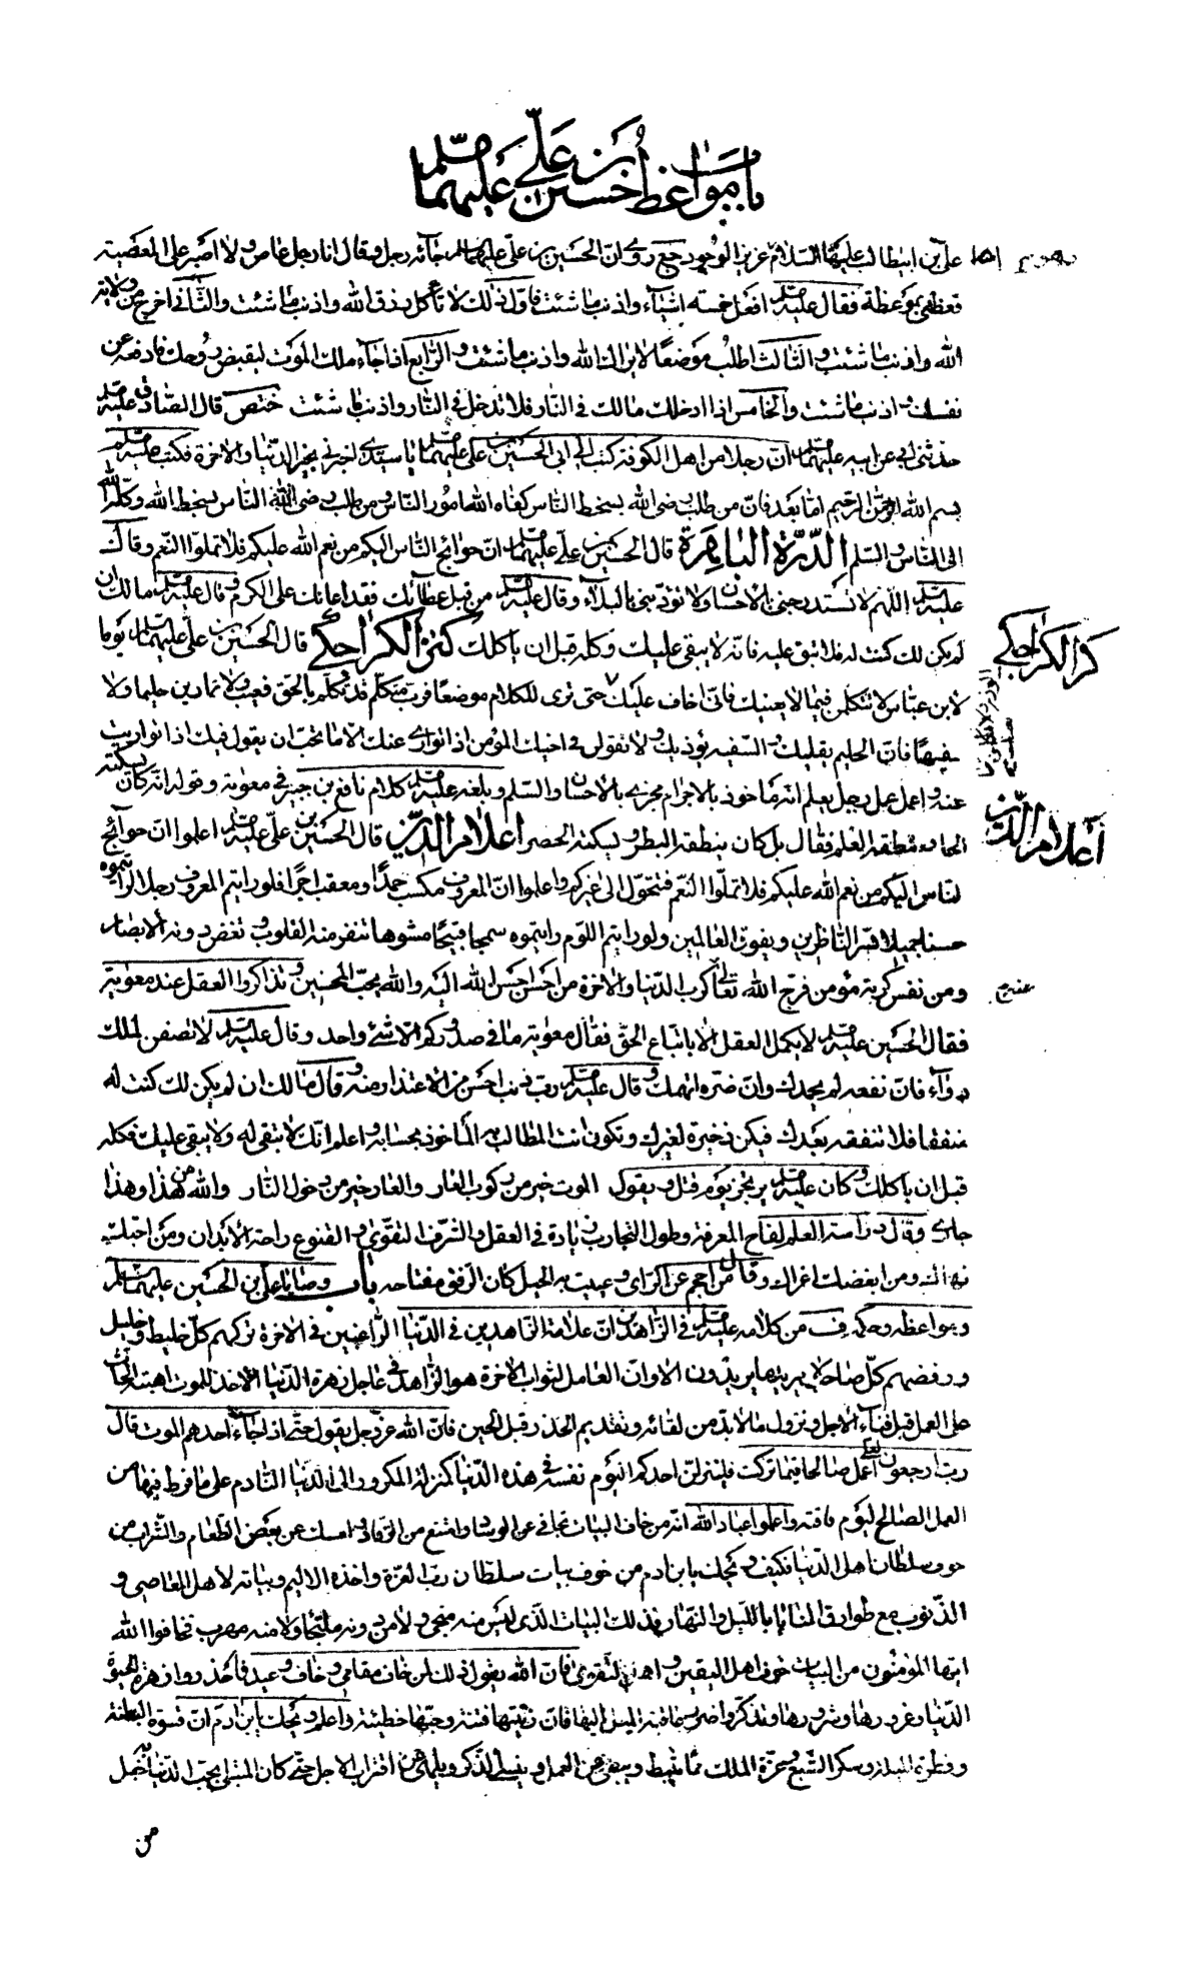 باب مواعظ الحسين بن علي عليهما السلام
علي بن ابيطالب عليهما السلام عزيز الوجود جع روي ان الحسين بن علي عليهما السلام جائه رجل وقال انا رجل عاص ولا اصبر على المعصية
فعظني بموعظة فقال عليه السلام افعل خمسة اشياء واذنب ما شئت فاول ذلك لا تأكل رزق الله واذنب ما شئت والثاني اخرج من ولاية
الله واذنب ما شئت والثالث اطلب موضعا لا يراك الله واذنب ما شئت والرابع اذا جاء ملك الموت ليقبض روحك فادفعه عن
نفسك واذنب ما شئت والخامس اذا ادخلك مالك في النار فلا تدخل في النار واذنب ما شئت ختص قال الصادق عليه السلام
حدثني ابي عن ابيه عليهما السلام ان رجلا من اهل الكوفة كتب الى ابي الحسين بن علي عليهما السلام يا سيدي اخبرني بخير الدنيا والاخرة فكتب عليه السلام
بسم الله الرحمن الرحيم اما بعد فان من طلب رضى الله بسخط الناس كفاه الله امور الناس ومن طلب رضى الناس بسخط الله وكله الله
الى الناس والسلم الدرة الباهرة قال الحسين بن علي عليهما السلام ان حوائج الناس اليكم من نعم الله عليكم فلا تملوا النعم وقال
عليه السلام اللهم لا تستدرجني بالاحسان ولا تؤدبني بالبلاء وقال عليه السلام من قبل عطائك فقد اعانك على الكرم وقال عليه السلام مالك ان
لم يكن لك كنت له فلا تبق عليه فانه لا يبقى عليك وكله قبل ان يأكلك كنز الكراجكي قال الحسين بن علي عليهما السلام يوما
لابن عباس لا تتكلمن فيما لا يعنيك فاني اخاف عليك حتى ترى للكلام موضعا فرب متكلم قد تكلم بالحق فعيب ولا تمارين حليما ولا
سفيها فان الحليم يقليك والسفيه يؤذيك ولا تقولن في اخيك المؤمن اذا توارى عنك الا ما تحب ان يقول فيك اذا تواريت
عنه واعمل عمل رجل يعلم انه مأخوذ بالاجرام مجزى بالاحسان والسلم وبلغه عليه السلام كلام نافع بن جبير في معوية وقوله انه كان يسكته
الحلم وينطقه العلم فقال بل كان ينطقه البطر ويسكته الحصر اعلام الدين قال الحسين بن علي عليه السلام اعلموا ان حوائج
الناس اليكم من نعم الله عليكم فلا تملوا النعم فتحول الى غيركم واعلموا ان المعروف مكسب حمدا ومعقب اجرا فلو رايتم المعروف رجلا لرأيتموه
حسنا جميلا يسر الناظرين ويفوق العالمين ولو رايتم اللوم رايتموه سمجا قبيحا مشوها تنفر منه القلوب وتغض دونه الابصار
ومن نفس كربة مؤمن فرج الله تعالى عنه كرب الدنيا والاخرة من احسن احسن الله اليه والله يحب المحسنين وتذاكروا العقل عند معوية
فقال الحسين عليه السلام لا يكمل العقل الا باتباع الحق فقال معوية ما في صدوركم الا شئ واحد وقال عليه السلام لا تصفن لملك
دواء فان نفعه لم يحمدك وان ضره اتهمك وقال عليه السلام رب ذنب احسن من الاعتذار منه وقال مالك ان لم يكن لك كنت له
منفقا فلا تنفقه بعدك فيكن ذخيرة لغيرك وتكون انت المطالب به المأخوذ بحسابه واعلم انك لا تبقى له ولا يبقى عليك فكله
قبل ان يأكلك وكان عليه السلام يرتجز يوم قتل ويقول الموت خير من ركوب العار والعار خير من دخول النار والله من هذا وهذا
جاري وقال دراسة العلم لقاح المعرفة وطول التجارب زيادة في العقل والشرف التقوى والقنوع راحة الابدان ومن احبك
نهاك ومن ابغضك اغراك وقال من احجم عن الراي وعييت به الحيل كان الرفق مفتاحه باب وصايا علي بن الحسين عليهما السلام
ومواعظه وحكمه ف من كلامه عليه السلام في الزاهدين ان علامة الزاهدين في الدنيا الراغبين في الاخرة تركهم كل خليط وخليل
ورفضهم كل صاحب لا يريد ما يريدون الا وان العامل لثواب الاخرة هو الزاهد في عاجل زهرة الدنيا الاخذ للموت اهبته الحاث
على العمل قبل فناء الاجل ونزول ما لا بد من لقائه وتقديم الحذر قبل الحين فان الله عز وجل يقول حتى اذا جاء احدهم الموت قال
رب ارجعون لعلي اعمل صالحا فيما تركت فلينزلن احدكم اليوم نفسه في هذه الدنيا كمنزلة المكرور الى الدنيا النادم على ما فرط فيها من
العمل الصالح ليوم فاقته واعلموا عباد الله انه من خاف البيات تجافى عن الوساد وامتنع من الرقاد وامسك عن بعض الطعام والشراب من
خوف سلطان اهل الدنيا فكيف ويحك يا بن ادم من خوف بيات سلطان رب العزة واخذه الاليم وبياته لاهل المعاصي و
الذنوب مع طوارق المنايا بالليل والنهار فذلك البيات الذي ليس منه منجى ولا من دونه ملتجأ ولا منه مهرب فخافوا الله
ايها المؤمنون من البيات خوف اهل اليقين واهل التقوى فان الله يقول ذلك لمن خاف مقامي وخاف وعيد فاحذروا زهرة الحيوة
الدنيا وغرورها وشرورها وتذكروا ضرر عاقبة الميل اليها فان زينتها فتنة وحبها خطيئة واعلم ويحك يابن ادم ان قسوة البطنة
وفطرة الميلة وسكر الشبع وعزة الملك مما يثبط ويبطئ عن العمل وينسي الذكر ويلهي عن اقتراب الاجل حتى كان المبتلى بحب الدنيا به خبل
من
كنز الكراجكي
اعلام الدين